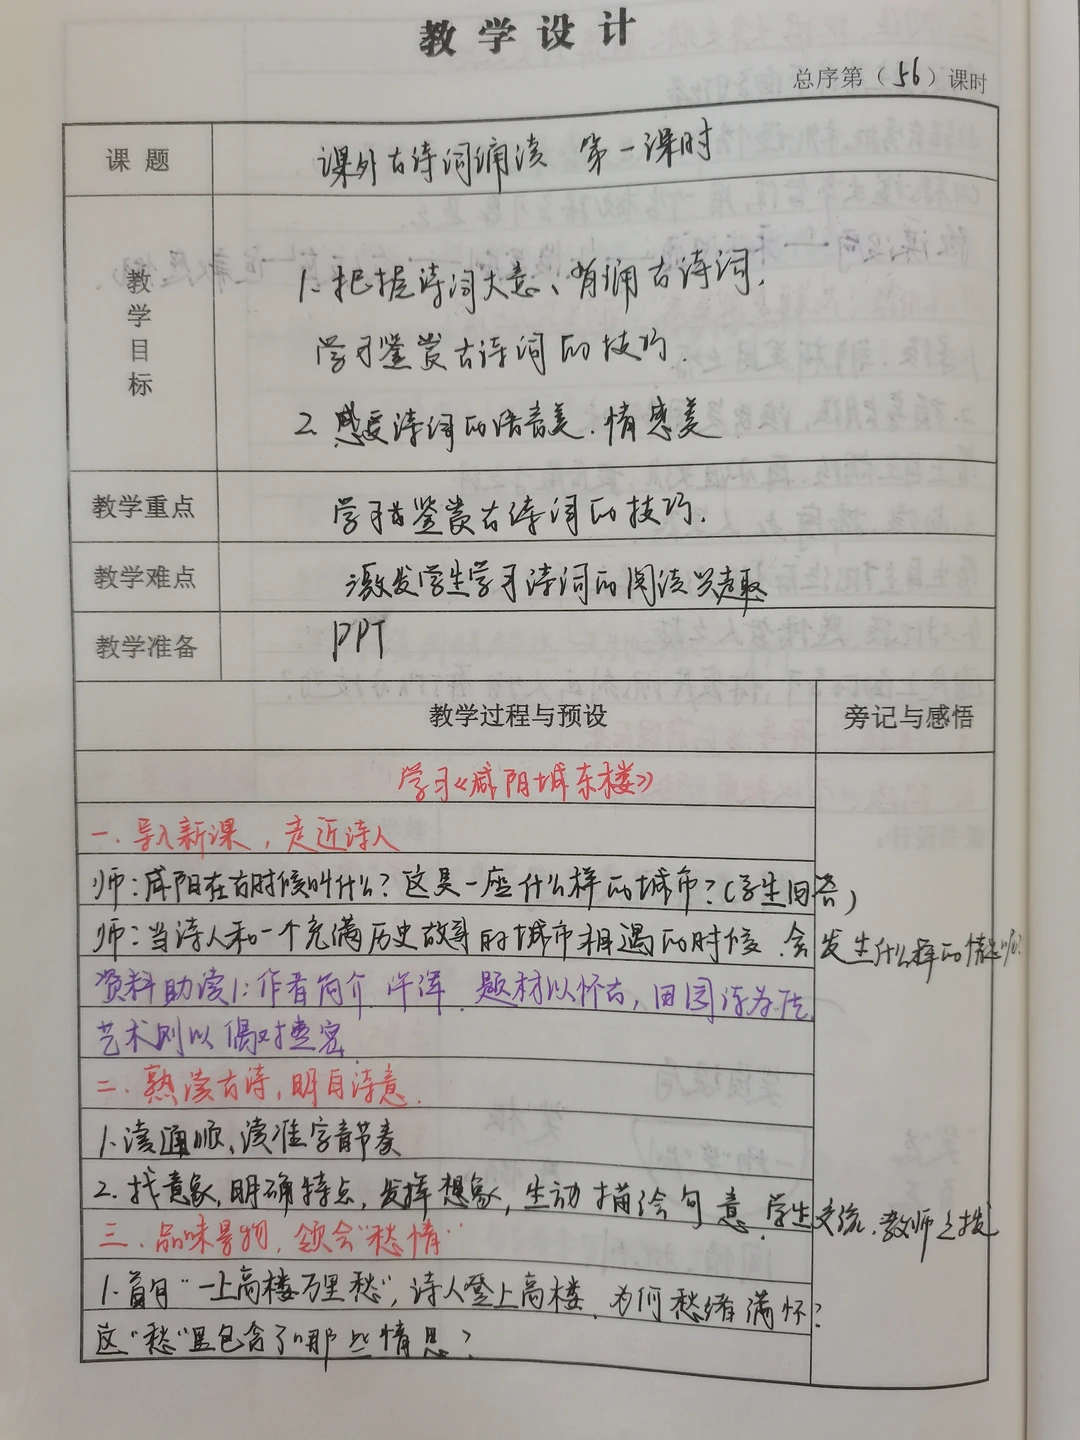 教学设计
总序第（56）课时
课题
课外古诗词诵读 第一课时
教学目标
1. 把握诗词大意、背诵古诗词,
学习鉴赏古诗词的技巧.
2. 感受诗词的语言美、情感美
教学重点
学习鉴赏古诗词的技巧.
教学难点
激发学生学习诗词的阅读兴趣
教学准备
PPT
教学过程与预设
旁记与感悟
学习《咸阳城东楼》
一. 导入新课，走近诗人
师：咸阳在古时候叫什么？这是一座什么样的城市？（学生回答）
师：当诗人和一个充满历史故事的城市相遇的时候.会发生什么样的情思呢?
资料助读1: 作者简介 许浑. 题材以怀古, 田园诗为佳.
艺术则以偶对整密.
二. 熟读古诗, 明白诗意.
1. 读通顺, 读准字音节奏
2. 找意象, 明确特点, 发挥想象, 生动描绘句意. 学生交流. 教师点拨
三. 品味景物, 领会"愁情"
1. 首句"一上高楼万里愁", 诗人登上高楼 为何愁绪满怀?
这"愁"里包含了哪些情思?